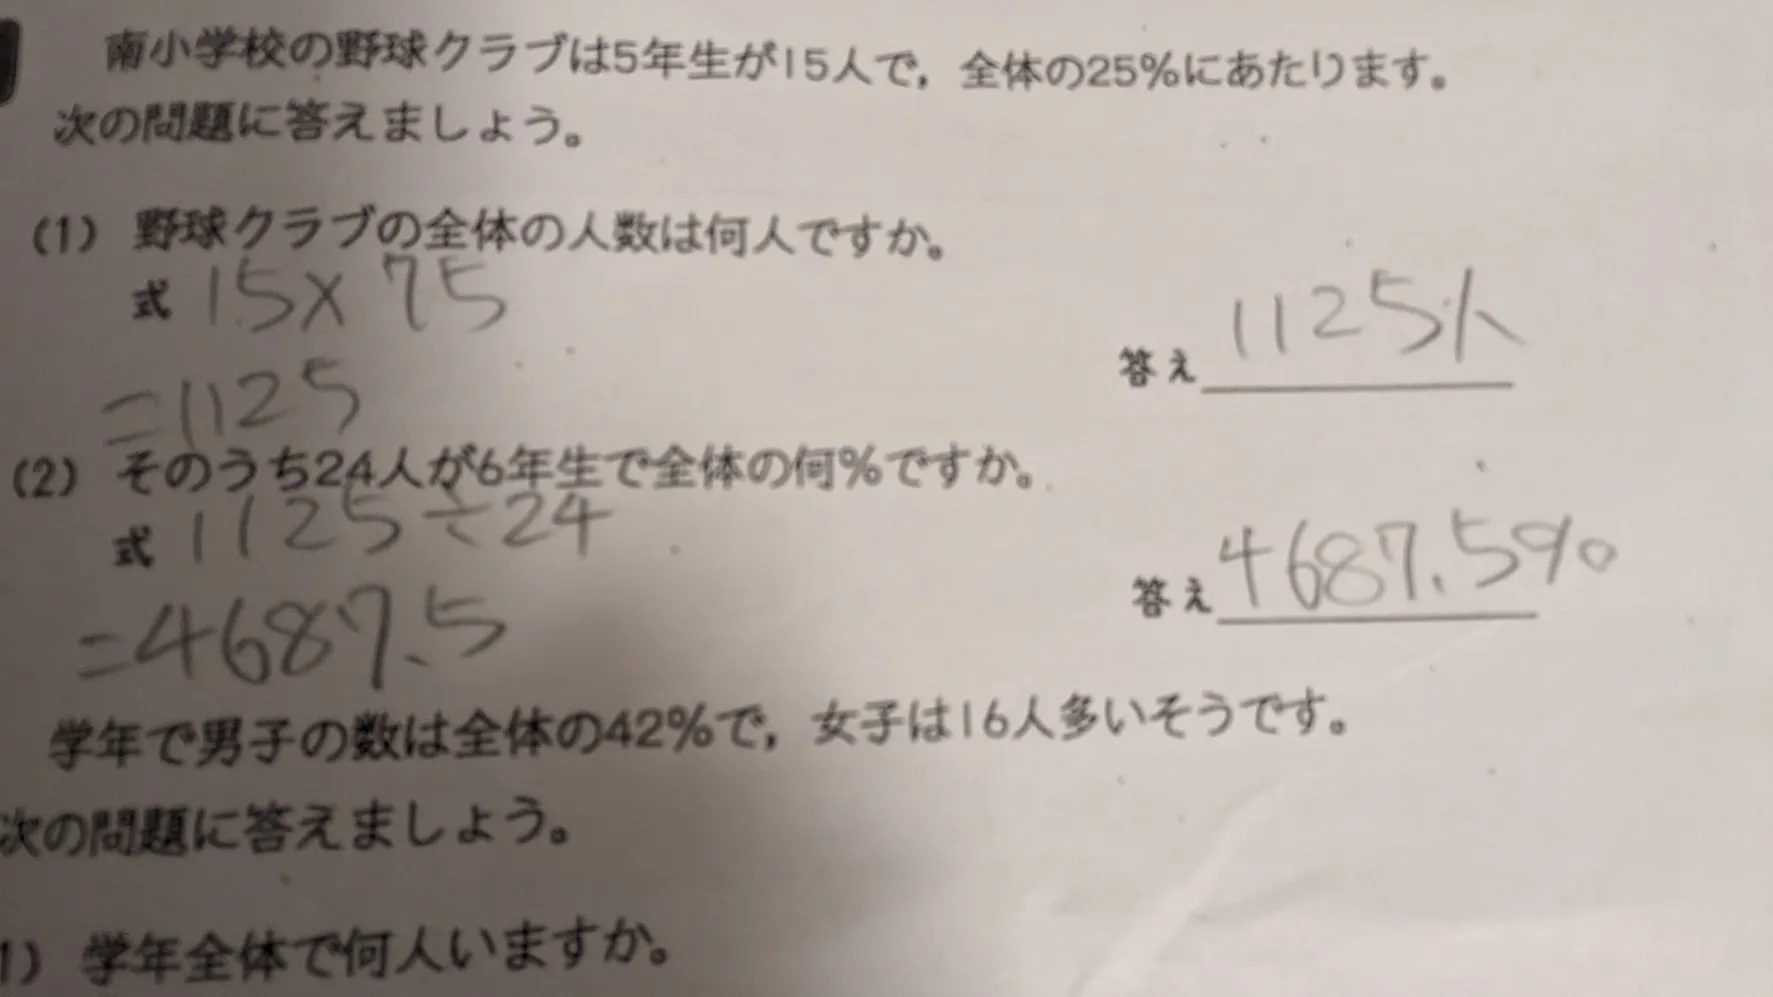 南小学校の野球クラブは5年生が15人で，全体の25%にあたります。
次の問題に答えましょう。
(1) 野球クラブの全体の人数は何人ですか。
式 15×75
=1125
答え 1125人
(2) そのうち24人が6年生で全体の何%ですか。
式 1125÷24
=4687.5
答え 4687.5%
学年で男子の数は全体の42%で，女子は16人多いそうです。
次の問題に答えましょう。
1) 学年全体で何人いますか。